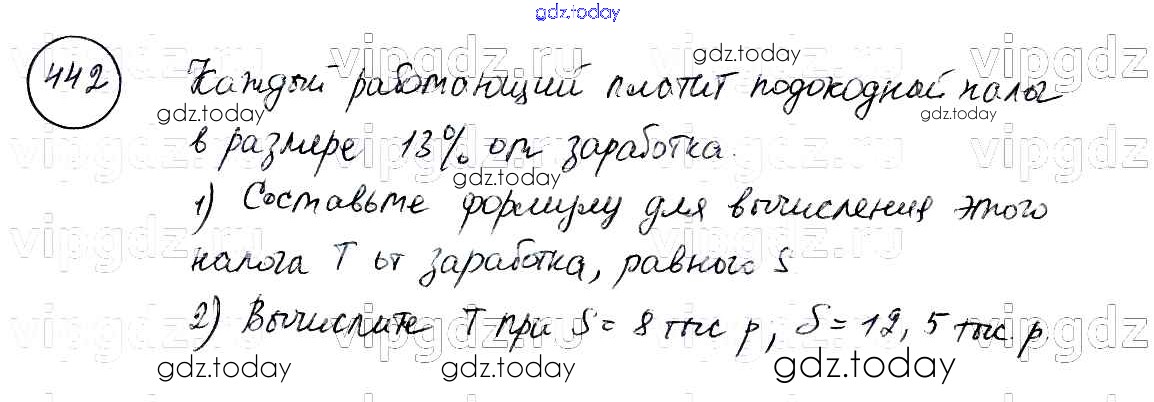 gdz.today
442 Каждый работающий платит подоходный налог
в размере 13% от заработка.
1) Составьте формулу для вычисления этого
налога T от заработка, равного S
2) Вычислите T при S = 8 тыс р, S = 12,5 тыс. р.
vipgdz.ru
gdz.today
gdz.today
gdz.today
gdz.today
gdz.today
gdz.today
gdz.today